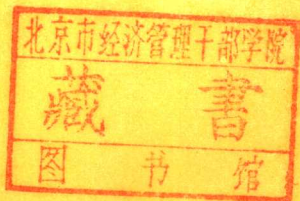 北京市经济管理干部学院
藏書
图书馆